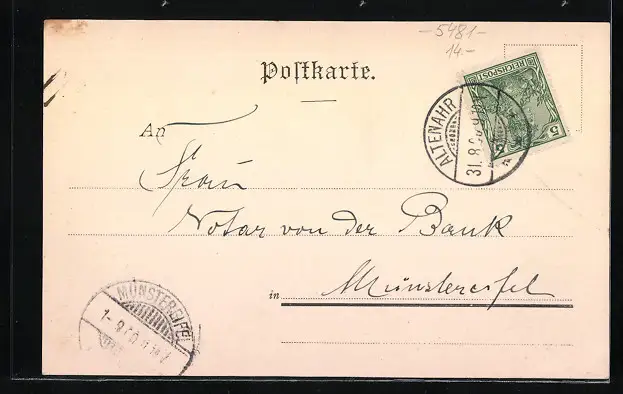 -5481-
14.-
Postkarte.
REICHSPOST
5
ALTENAHR
31.8.
An
Frau
Notar von der Bank
in Münstereifel
MÜNSTEREIFEL
1-9